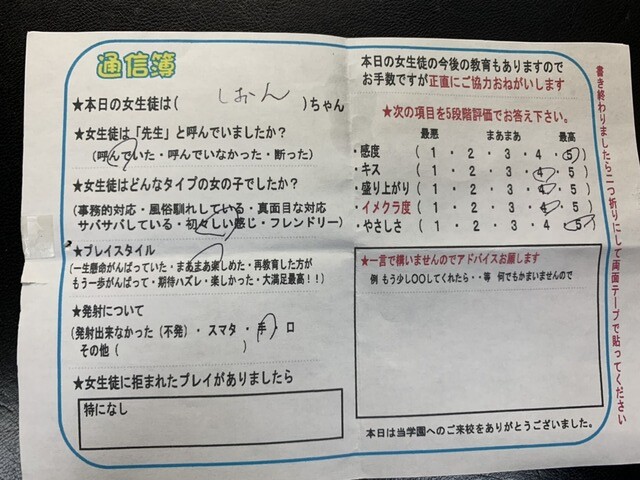 通信簿
★本日の女生徒は( しおん )ちゃん
★女生徒は「先生」と呼んでいましたか?
(呼んでいた・呼んでいなかった・断った)
★女生徒はどんなタイプの女の子でしたか?
(事務的対応・風俗馴れしている・真面目な対応
サバサバしている・初々しい感じ・フレンドリー)
★プレイスタイル
(一生懸命がんばっていた・まあまあ楽しめた・再教育した方が
もう一歩がんばって・期待ハズレ・楽しかった・大満足最高!!)
★発射について
(発射出来なかった(不発)・スマタ・手・口
その他( )
★女生徒に拒まれたプレイがありましたら
特になし
本日の女生徒の今後の教育もありますので
お手数ですが正直にご協力おねがいします
★次の項目を5段階評価でお答え下さい。
最悪 まあまあ 最高
・感度 ( 1 ・ 2 ・ 3 ・ 4 ・ 5 )
・キス ( 1 ・ 2 ・ 3 ・ 4 ・ 5 )
・盛り上がり ( 1 ・ 2 ・ 3 ・ 4 ・ 5 )
・イメクラ度 ( 1 ・ 2 ・ 3 ・ 4 ・ 5 )
・やさしさ ( 1 ・ 2 ・ 3 ・ 4 ・ 5 )
★一言で構いませんのでアドバイスお願します
例 もう少し〇〇してくれたら・・等 何でもかまいませんので
本日は当学園へのご来校をありがとうございました。
書き終わりましたら二つ折りにして両面テープで貼ってください